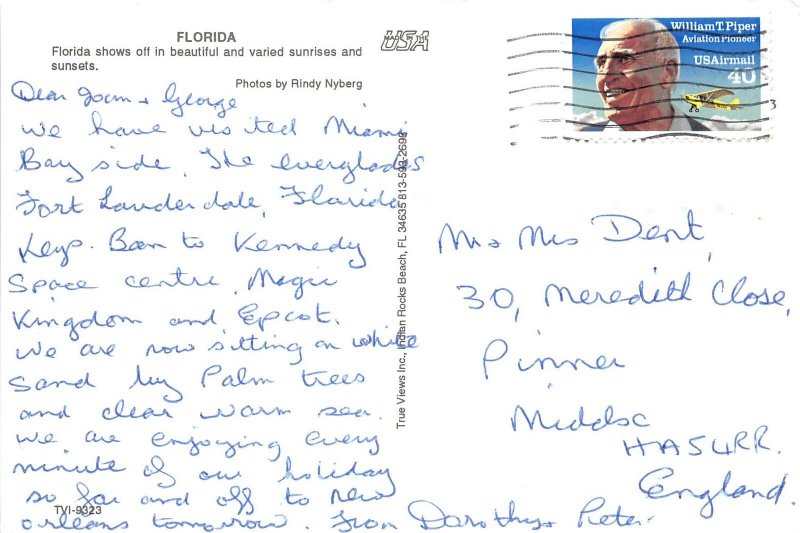 FLORIDA
Florida shows off in beautiful and varied sunrises and
sunsets.
Photos by Rindy Nyberg
MADE IN THE
USA
William T. Piper
Aviation Pioneer
USAirmail
40
3
Dear Joan + George
we have visited Miami
Bay side, The everglades
Fort Lauderdale, Florida
Keys. Been to Kennedy
Space centre, Magic
Kingdom and Epcot.
We are now sitting on white
sand by Palm trees
and clear warm sea.
We are enjoying every
minute of our holiday
so far and off to New
orleans tomorrow. From Dorothy + Peter.
TVI-9323
True Views Inc., Indian Rocks Beach, FL 34635 813-593-2699
Mr + Mrs Dent,
30, Meredith Close,
Pinner
Middsx
HA5 4RR.
England.